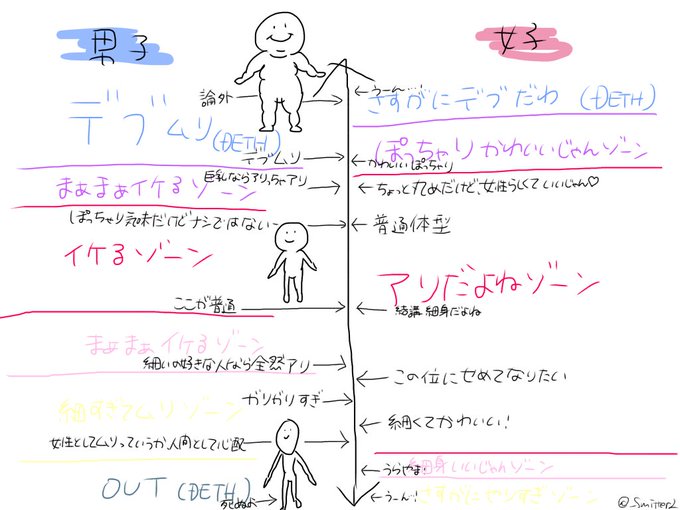 男子
女子
論外
うーん…
さすがにデブだわ (DETH)
デブムリ(DETH)
デブムリ
かわいいぽっちゃり
ぽっちゃりかわいいじゃんゾーン
巨乳ならアリっちゃアリ
まぁまぁイケるゾーン
ちょっと丸めだけど、女性らしくていいじゃん♡
ぽっちゃり気味だけどナシではない
普通体型
イケるゾーン
アリだよねゾーン
ここが普通
結構細身だよね
まぁまぁイケるゾーン
細いの好きな人なら全然アリ
この位にせめてなりたい
ガリガリすぎ
細すぎてムリゾーン
細くてかわいい!
女性としてムリっていうか人間として心配
うらやま!
細身いいじゃんゾーン
OUT (DETH)
死ぬよ
うーん!
さすがにヤリすぎゾーン